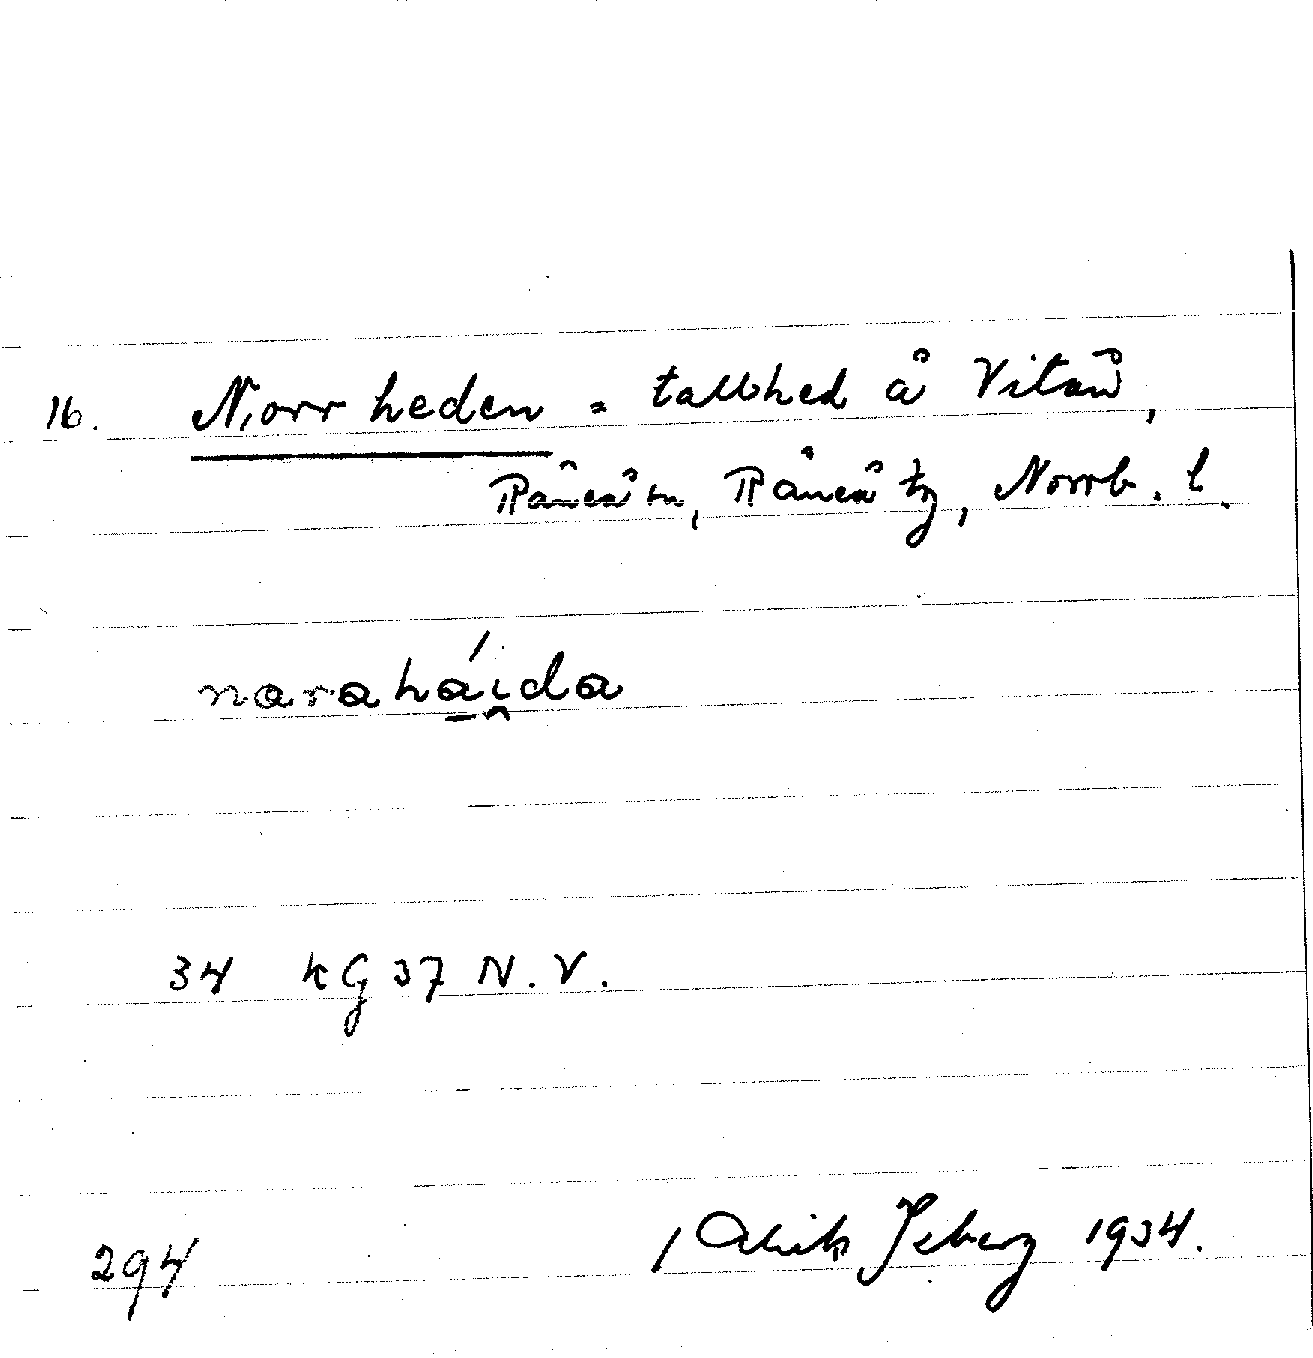 16. Norrheden = tallhed å Vitån,
Råneå sn, Råneå tg, Norrb. l.
naraháida
34 KG 37 N.V.
294 1934.